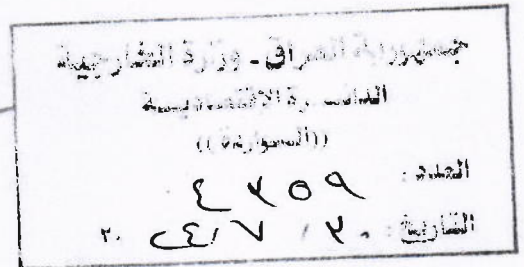 جمهورية العراق - وزارة الخارجية
الدائرة الاقتصادية
((الواردة))
العدد: ٤٢٥٩
التاريخ: ٣٠ / ٧ / ٢٠٢٤